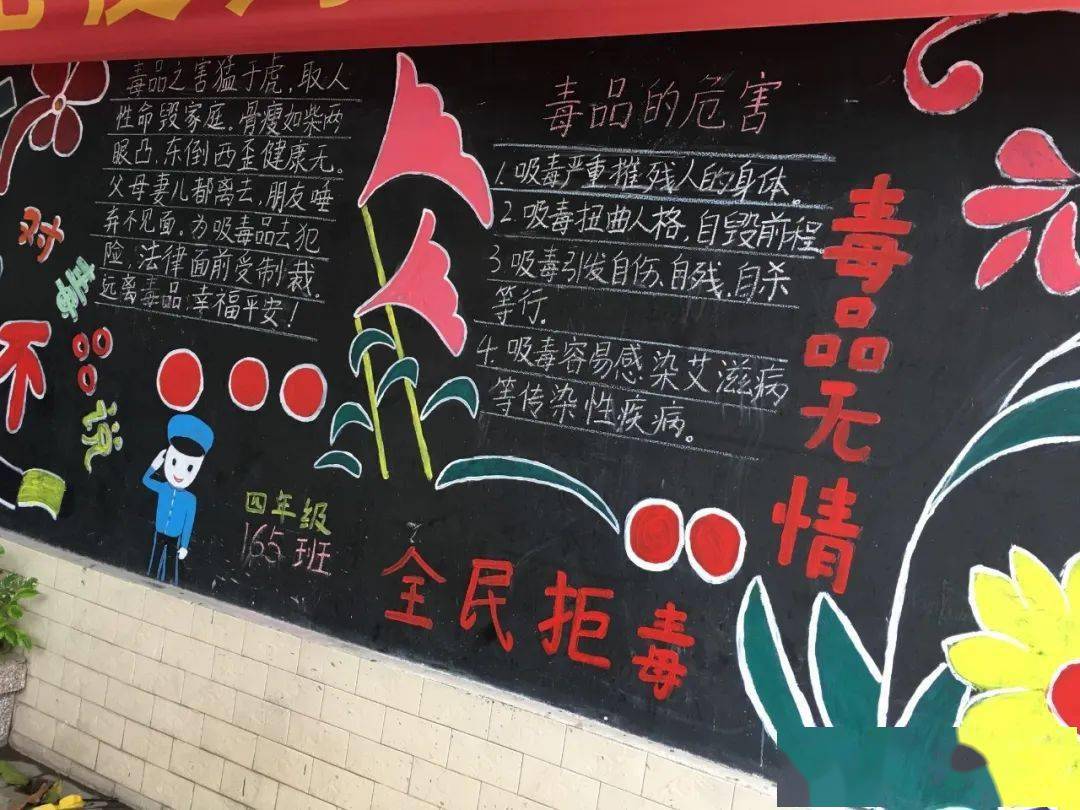 对
毒品
说
不
毒品之害猛于虎，取人
性命毁家庭。骨瘦如柴两
眼凸，东倒西歪健康无。
父母妻儿都离去，朋友唾
弃不见面，为吸毒品去犯
险，法律面前受制裁。
远离毒品，幸福平安！
四年级
165班
毒品的危害
1.吸毒严重摧残人的身体。
2.吸毒扭曲人格，自毁前程。
3.吸毒引发自伤、自残、自杀
等行.
4.吸毒容易感染艾滋病
等传染性疾病。
毒品无情
全民拒毒